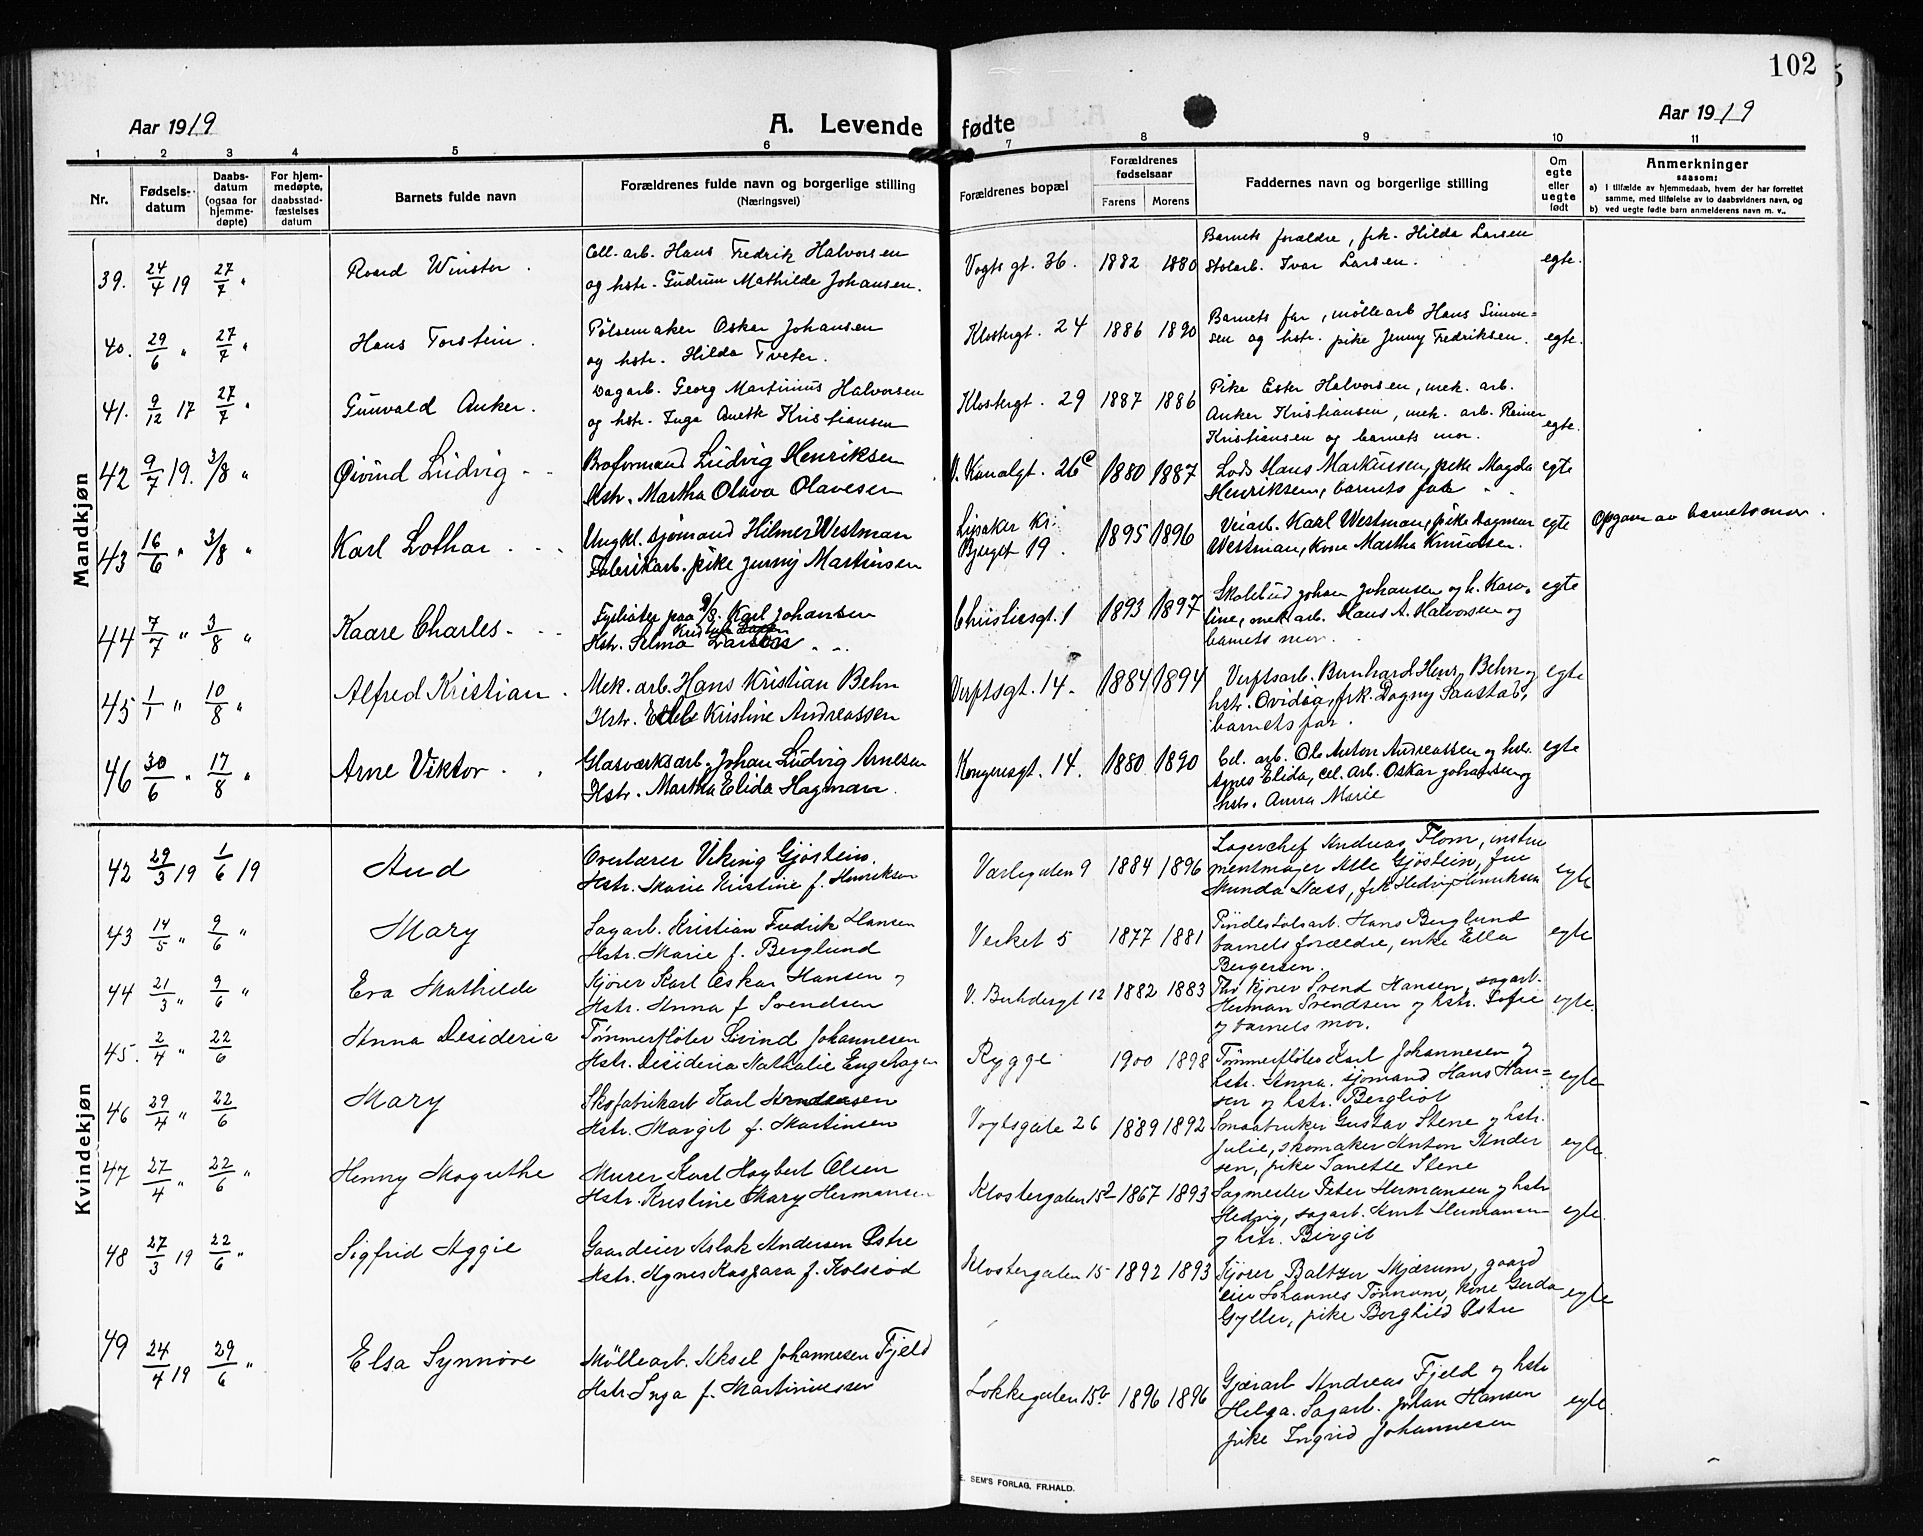 102
Aar 1919
A. Levende fødte
Aar 1919
1 2 3 4 5 6 7 8 9 10 11
Nr.
Fødsels-
datum
Daabs-
datum
(ogsaa for
hjemme-
døpte)
For hjem-
medøpte,
daabsstad-
fæstelses
datum
Barnets fulde navn
Forældrenes fulde navn og borgerlige stilling
(Næringsvei)
Forældrenes bopæl
Forældrenes
fødselsaar
Farens Morens
Faddernes navn og borgerlige stilling
Om
egte
eller
uegte
født
Anmerkninger
saasom:
a) I tilfælde av hjemmedaab, hvem der har forrettet
samme, med tilføielse av to daabsvidners navn, og
b) ved uegte fødte barn anmelderens navn m. v.,
Mandkjøn
39. 24/4 19 27/7 "
Roard Winster.
Cell. arb. Hans Fredrik Halvorsen
og hstr. Gudrun Mathilde Johansen.
Vogts gt. 36. 1882 1880
Barnets forældre, frk. Hilda Larsen
Stolarb. Ivar Larsen.
egte.
40. 29/6 " 27/7 "
Hans Torstein.
Pølsemaker Oskar Johansen
og hstr. Hilda Tveter.
Klostergt. 24 1886 1890
Barnets far, møllearb Hans Simon=
sen og hstr. pike Jenny Fredriksen.
egte.
41. 9/12 17 27/7 "
Gunvald Anker.
Dagarb. Georg Martinius Halvorsen
og hstr. Inga Anette Kristiansen
Klostergt. 29 1887 1886
Pike Ester Halvorsen, mek. arb.
Anker Kristiansen, mek. arb. Reiner
Kristiansen og barnets mor.
egte.
42 9/7 19. 3/8 "
Øivind Ludvig
Broformand Ludvig Henriksen
Hstr. Martha Olava Olavesen
V. Kanalgt. 26c 1880 1887
Lods Hans Markussen, pike Magda
Henriksen, barnets far
egte
43 16/6 " 3/8 "
Karl Lothar
Ungkl. sjømand Hilmer Westman
Fabrikarb. pike Jenny Martinsen
Bjerget 19. 1895 1896
Veiarb. Karl Westman, pike Dagmar
Westman, kone Martha Knudsen.
egte
Opgave av barnets mor.
44 7/7 " 3/8 "
Kaare Charles
Fyrbøter paa D/S. Karl Johansen
Hstr. Selma Larsen
Christiesgt. 1 1893 1897
Johan Johansen og h. Karo-
line, mek arb. Hans A. Halvorsen og
barnets mor.
egte
45 1/1 " 10/8 "
Alfred Kristian.
Mek. arb. Hans Kristian Behn
Hstr. Edele Kristine Andreassen
Verftsgt. 14. 1884 1894
Verftsarb. Bernhard Henr. Behn og
hstr. Ovidia, frk. Dagny Saastad,
barnets far.
egte
46 30/6 " 17/8 "
Arne Viktor
Glasverksarb. Johan Ludvig Arnesen
Hstr. Martha Elida Hagman.
Kongensgt. 14. 1880 1890
Cel. arb. Ole Anton Andreassen og hstr.
Agnes Elida, cel. arb. Oskar Johansen og
hstr. Anna Marie
egte
Kvindekjøn
42 29/3 19 1/6 19
Aud
Overlærer Viking Gjøstein.
Hstr. Marie Kristine f. Henriksen
Varlegaten 9 1884 1896
Lagerchef Andreas Flom, instru
mentmager Atle Gjøstein, fru
Munda Næss, frk Hedvig Henriksen
egte
43 14/5 " 9/6 "
Mary
Sagarb. Kristian Fredrik Hansen
Hstr. Marie f. Berglund
Verket 5 1877 1881
Pindestolsarb. Hans Berglund
barnets forældre, enke Ella
Bergersen.
egte
44 21/3 " 9/6 "
Eva Mathilde
Kjører Karl Oskar Hansen og
Hstr. Anna f. Svendsen
12 1882 1883
kjører Svend Hansen, sagarb.
Herman Svendsen og hstr. Sofie
og barnets mor.
egte.
45. 2/4 " 22/6
Anna Desideria
Tømmerfløter Eivind Johannesen
Hstr. Desideria Nathalie Engehagen
Rygge 1900 1898
Tømmerfløter Karl Johannesen og
hstr. Anna. sjømand Hans Han=
sen og hstr. Bergliot
egte
46 29/4 " 22/6
Mary
Skofabrikarb Karl Andersen
Hstr. Margit f. Martinsen
Vogtsgate 26 1889 1892
Smaabruker Gustav Stene og hstr.
Julie, skomaker Anton Ander
sen, pike Sanette Stene
egte.
47 27/4 " 22/6 "
Henny Magrethe
Murer Karl Hagbert Olsen
Hstr. Kristine Mary Hermansen
Klostergaten 15² 1867 1893
Sagmester Peter Hermansen og hstr
Hedvig, sagarb. Kurt Hermansen
og hstr. Birgit
egte.
48 27/3 19 22/6 "
Sigfrid Aggie
Gaardeier Aslak Andersen Østre
Hstr. Agnes Kaspara f. Kolsrød
Klostergaten 15 1892 1893
Kjører Baltzer Mjærum, gaard
eier Johannes Tønnum, kone Gerda
Gyller, pike Borghild Østre
egte
49 24/4 19 29/6 "
Elsa Synnøve
Møllearb. Aksel Johannesen Fjeld
Hstr Inga f. Martiniussen
Løkkegaten 15b 1896 1896
Gjærarb Andreas Fjeld og hstr
Helga. Sagarb. Johan Hansen
pike Ingrid Johannesen
egte.
E. SEM'S FORLAG, FR.HALD.